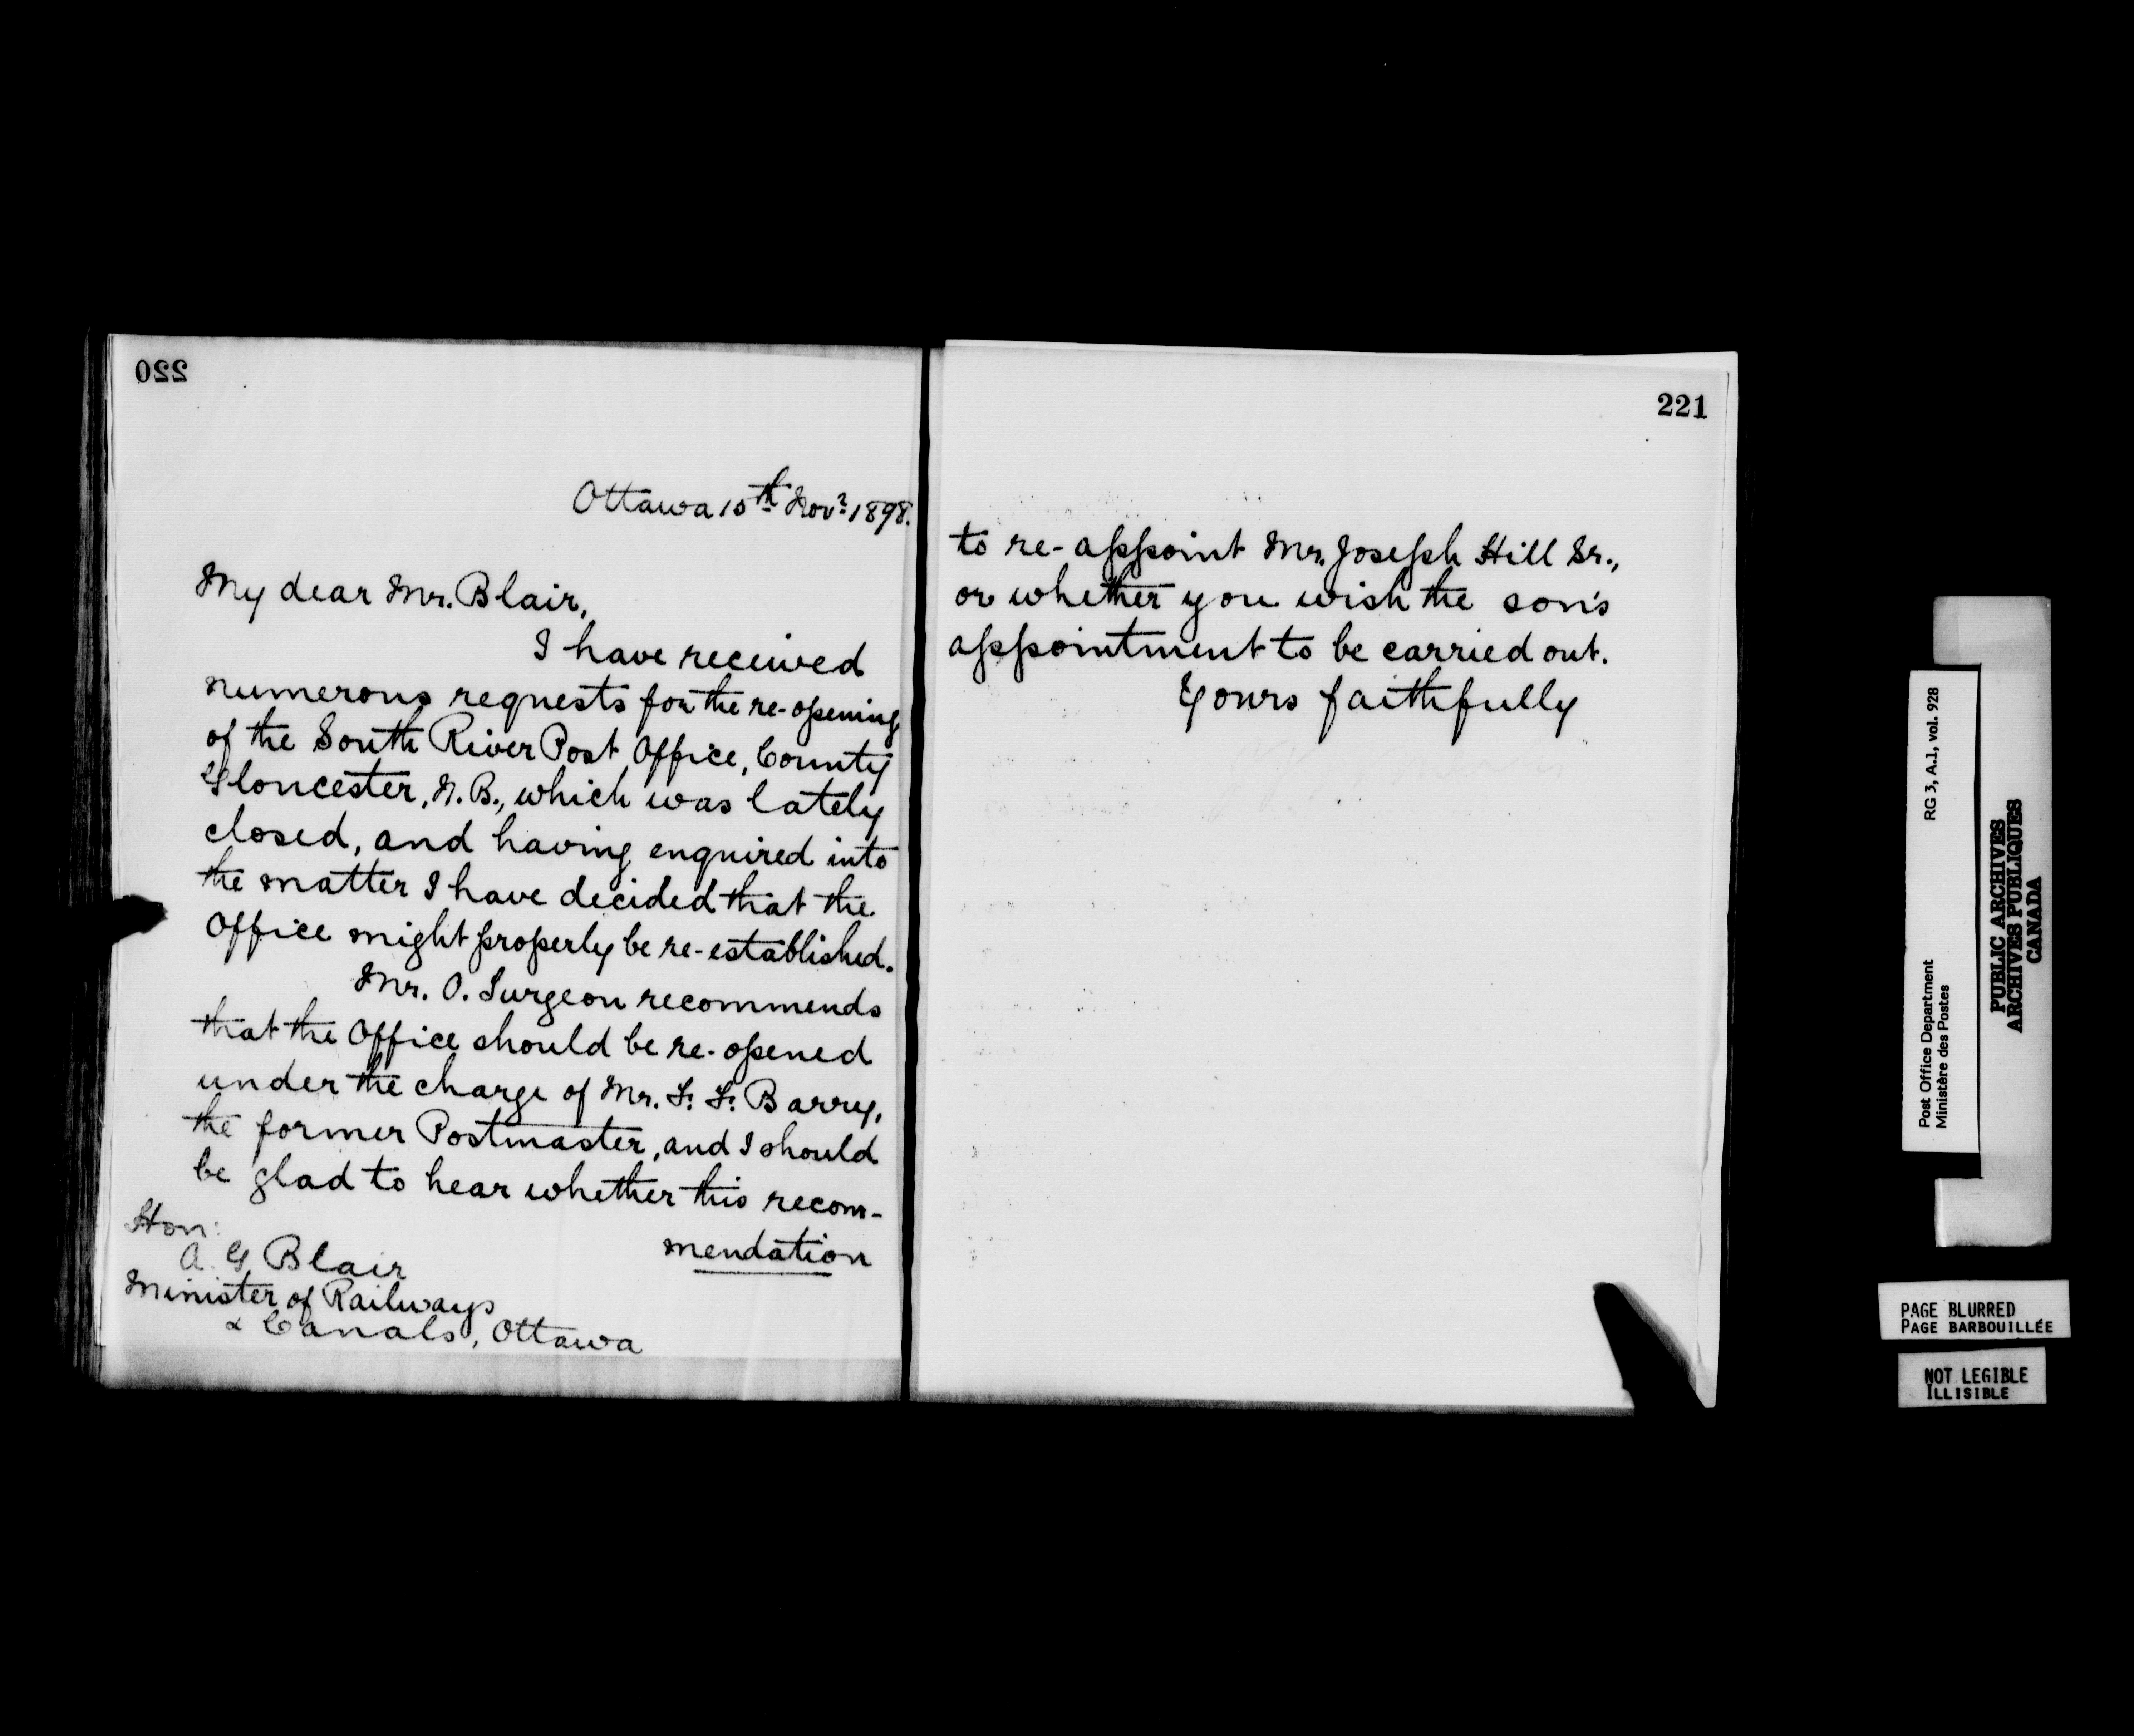 220
Ottawa 10th Novr 1898.
My dear Mr. Blair,
I have received
numerous requests for the re-opening
of the South River Post Office, County
Gloucester, N. B., which was lately
closed, and having enquired into
the matter I have decided that the
Office might properly be re-established.
Mr. O. Turgeon recommends
that the Office should be re-opened
under the charge of Mr. F. F. Barry,
the former Postmaster, and I should
be glad to hear whether this recom-
mendation
Hon:
A. G. Blair
Minister of Railways
& Canals, Ottawa
221
to re-appoint Mr. Joseph Hill Sr.,
or whether you wish the son's
appointment to be carried out.
Yours faithfully
Post Office Department
Ministère des Postes
RG 3, A.1, vol. 928
PUBLIC ARCHIVES
ARCHIVES PUBLIQUES
CANADA
PAGE BLURRED
PAGE BARBOUILLÉE
NOT LEGIBLE
ILLISIBLE